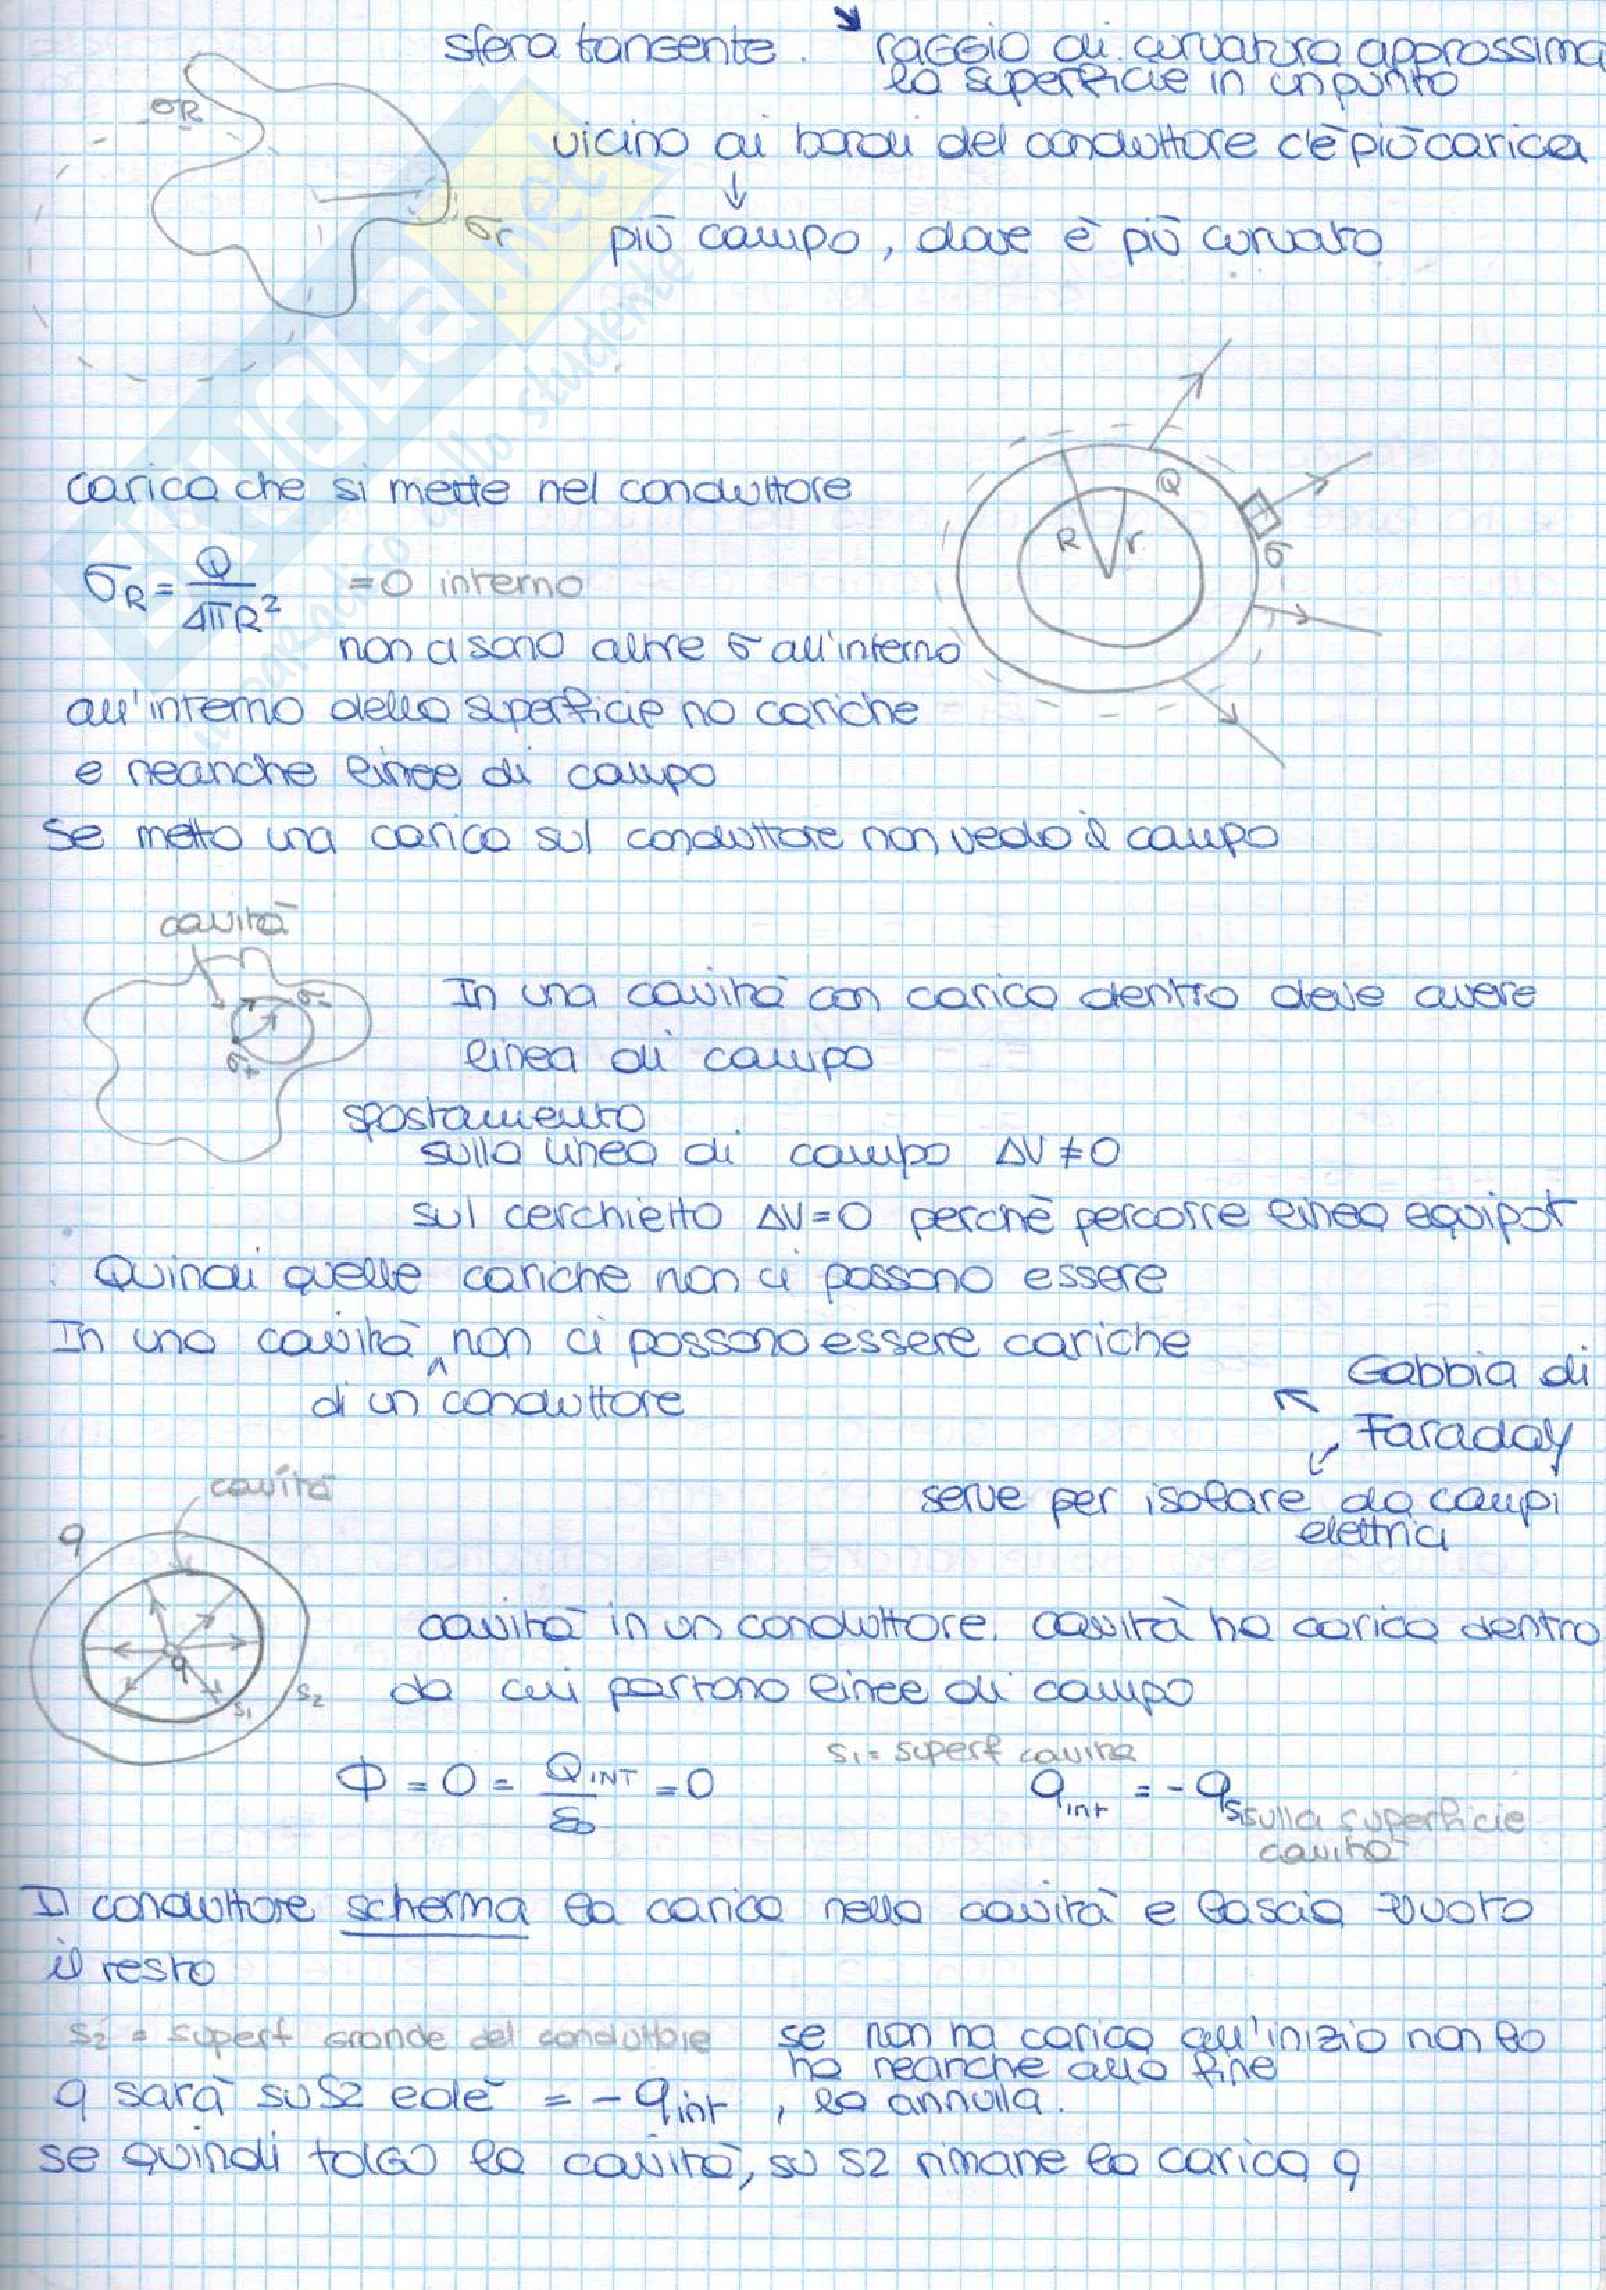 sfera tangente. ↘ raggio di curvatura approssima
la superficie in un punto
σR
vicino ai bordi del conduttore c'è più carica
↓
σr
più campo, dove è più curvato
carica che si mette nel conduttore
Q
R r
σ
σR = Q / 4πR² = 0 interno
non ci sono altre σ all'interno
all'interno della superficie no cariche
e neanche linee di campo
Se metto una carica sul conduttore non vedo il campo
cavità
σ-
σ+
In una cavità con carica dentro deve avere
linea di campo
spostamento
sulla linea di campo ΔV ≠ 0
sul cerchietto ΔV = 0 perchè percorre linea equipot
Quindi quelle cariche non ci possono essere
In una cavità ^ non ci possono essere cariche
di un conduttore
Gabbia di
Faraday
serve per isolare da campi
elettrici
cavità
q
q
S1
S2
cavità in un conduttore. cavità ha carica dentro
da cui partono linee di campo
S1 = superf cavità
Φ = 0 = QINT / ε0 = 0
qint = - qS1 sulla superficie
cavità
Il conduttore scherma la carica nella cavità e lascia vuoto
il resto
S2 = superf grande del conduttore
se non ha carica all'inizio non la
ha neanche alla fine
q sarà su S2 ed è = - qint, la annulla.
se quindi tolgo la cavità, su S2 rimane la carica q
SKUOLA.net
un paradiso dello studente